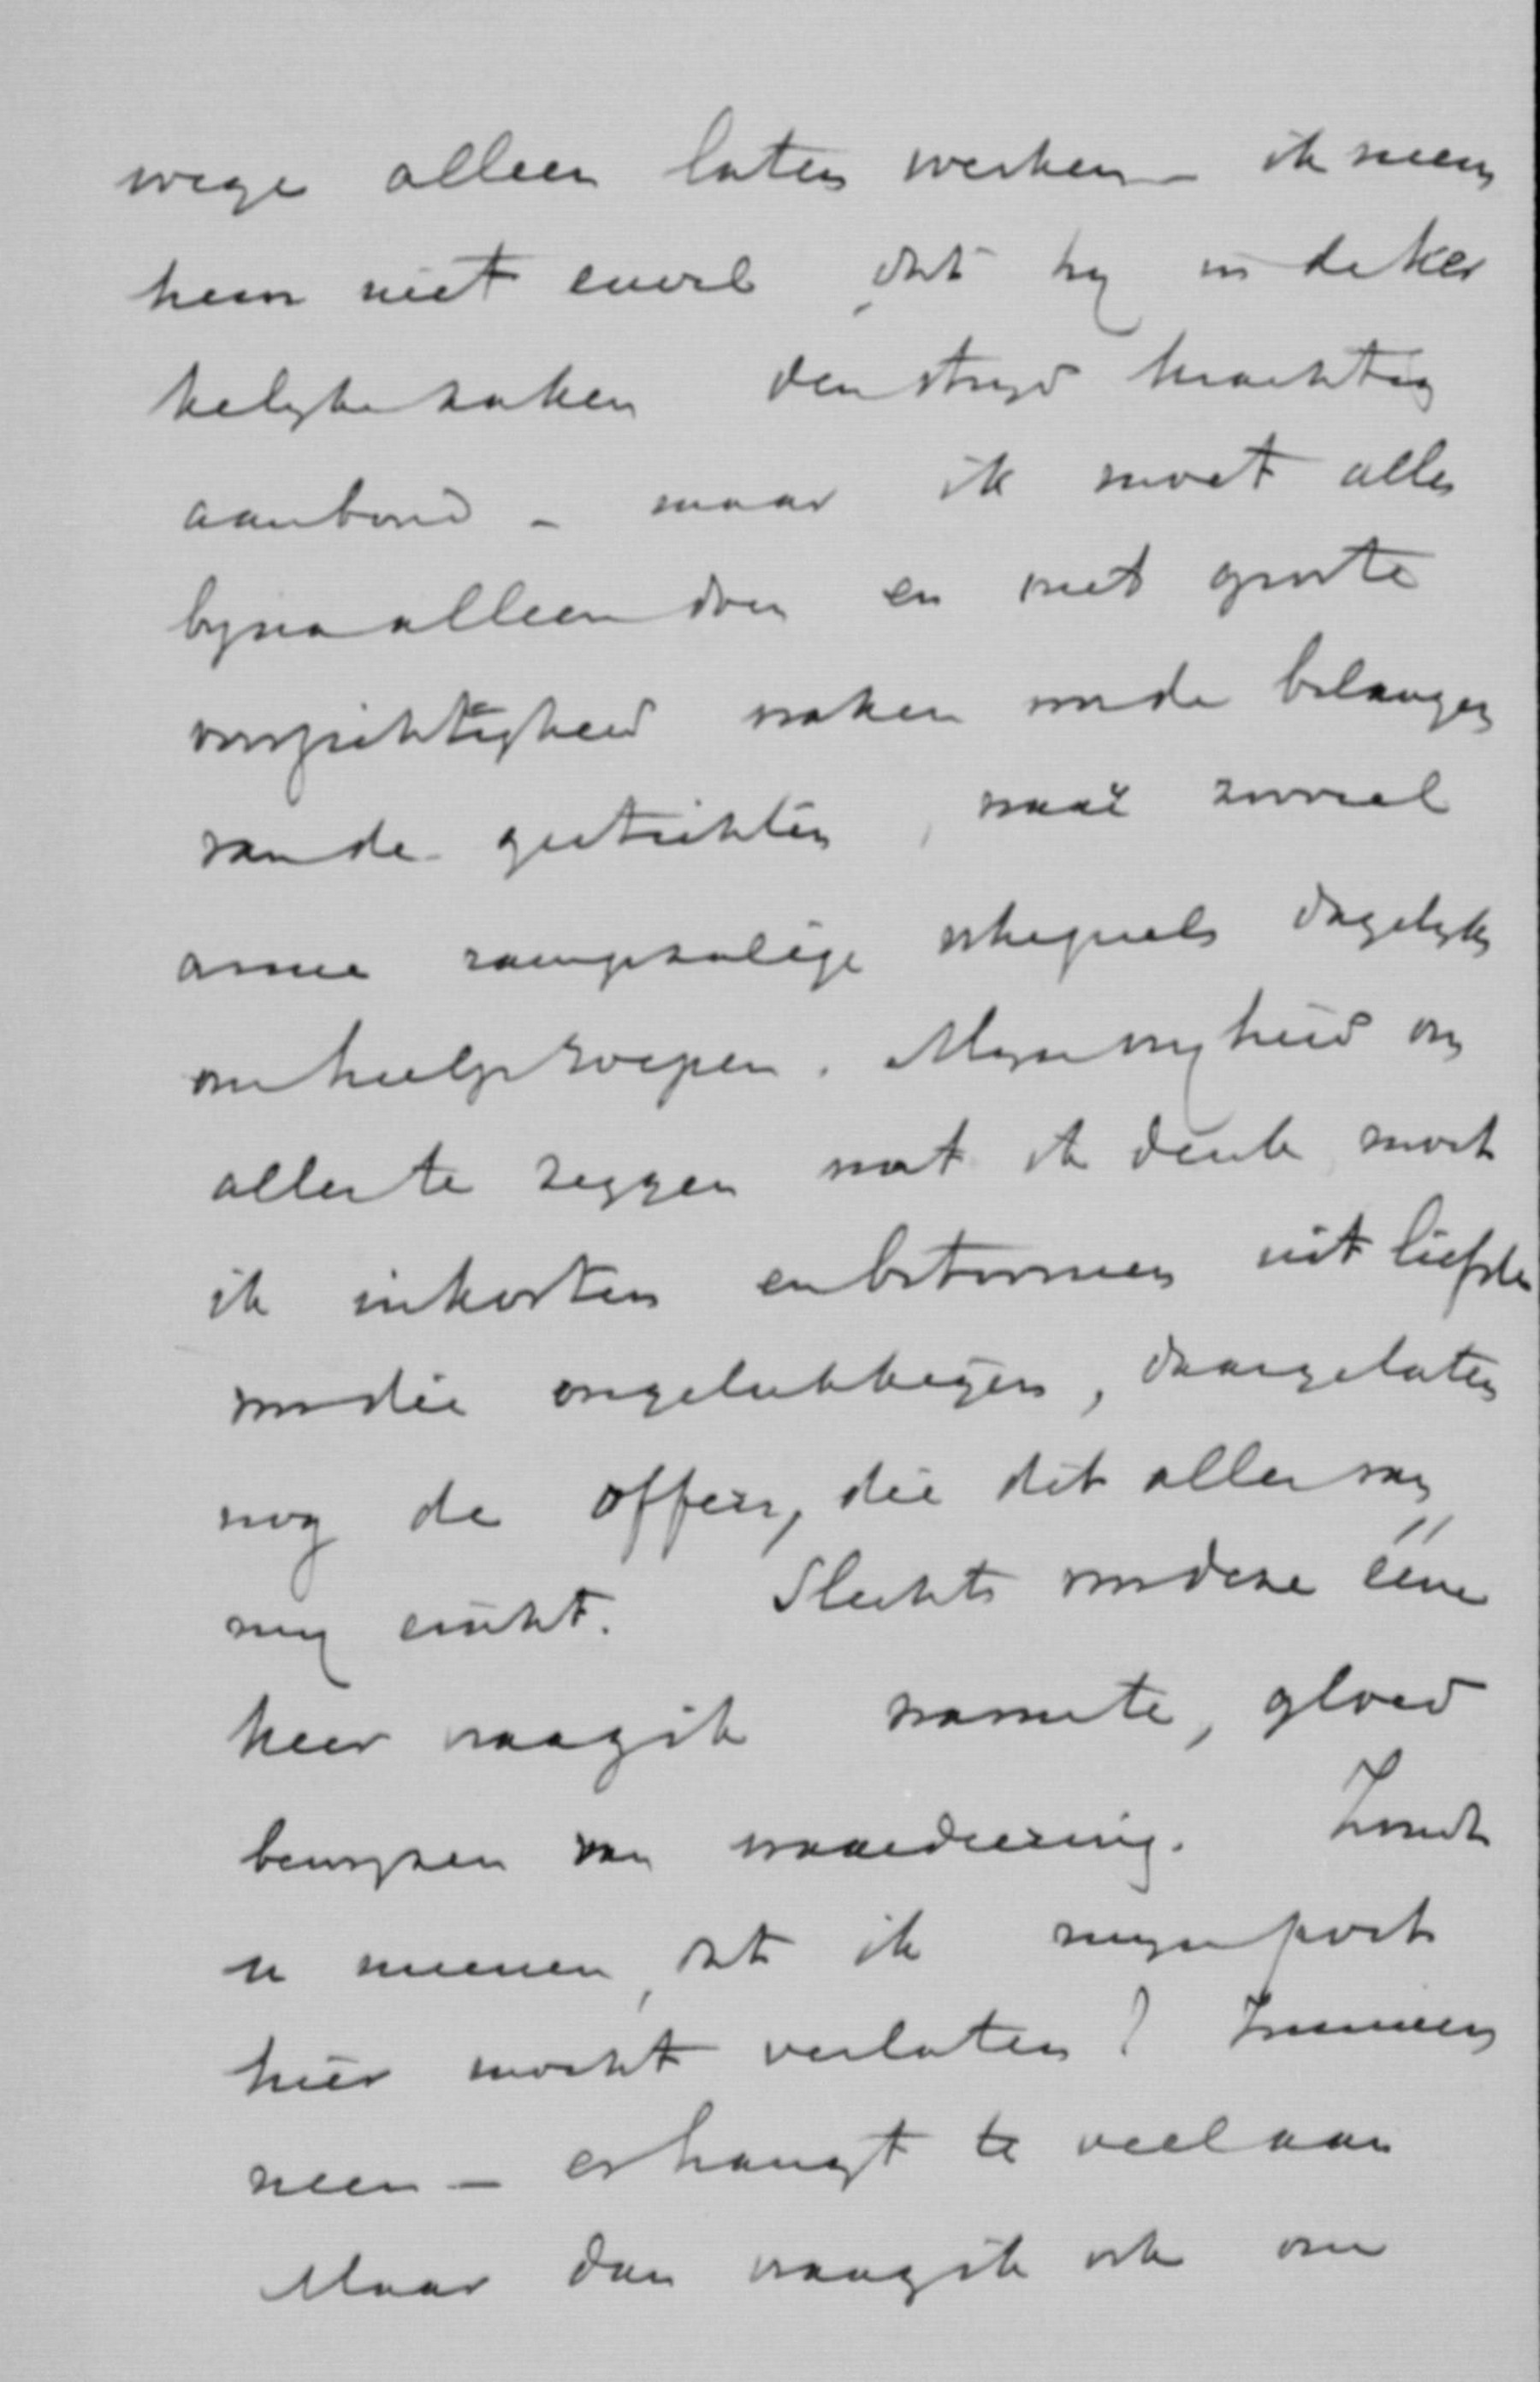 wege alleen laten werken – ik neem
hem niet euvel, dat hy in de ker
kelyke zaken den stryd krachtig
aanbond – maar ik moet alles
byna alleen doen en met groote
voorzichtigheid waken voor de belangen
van de gestichten, waar zooveel
arme rampzalige schepsels dagelyks
om hulp roepen. Myn vryheid om
alles te zeggen wat ik denk moet
ik inkorten en betoomen uit liefde
voor die ongelukkigen, daargelaten
nog de offers, die dit alles van
my eischt. Slechts voor deze ééne
keer vraag ik warmte, gloed
bewyzen van waardeering. Zoudt
u meenen, dat ik myn post
hier mocht verlaten? Immers
neen – er hangt te veel aan
Maar dan vraag ik ook om